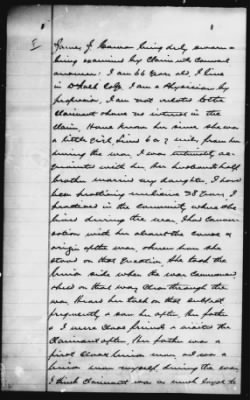 James J.        being duly sworn &
being examined by Claimants Counsel
answers: I am 66 years old, I live
in DeKalb Co Ga. I am a Physician by
profession, I am not related to the
Claimant & have no interest in the
claim, Have known her since she was
a little girl, lived 6 or 7 miles from her
during the war, I was intimately ac-
quainted with her, Her husband's half
brother married my daughter, I have
been practicing medicine 38 years, I
practiced in the community where she
lived during the war, I had Conver-
sation with her about the cause &
origin of the war, & knew how she
stood on that question. She took the
Union side when the war Commenced
& held on that way clean through the
war. Heard her talk on that subject
frequently & saw her often. Her father
& I were Close friends & visited the
Claimant often. Her father was a
first Class Union man, & I was a
Union man myself during the war,
I think Claimant was as much loyal to